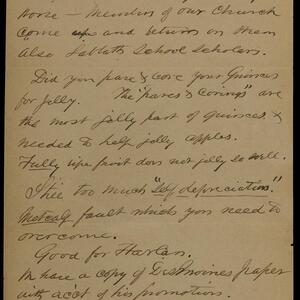 horse – Members of our Church
come up and return on them
Also Sabbath School Scholars.
Did you pare & core your Quinces
for jelly. The "pares & Corings" are
the most jelly part of quinces &
needed to help jelly apples.
Fully ripe fruit does not jelly so well.
too much "Self depreciation."
Metcalf fault which you need to
overcome.
Good for Harlan.
We have a copy of Des Moines paper
with acc't of his promotion.